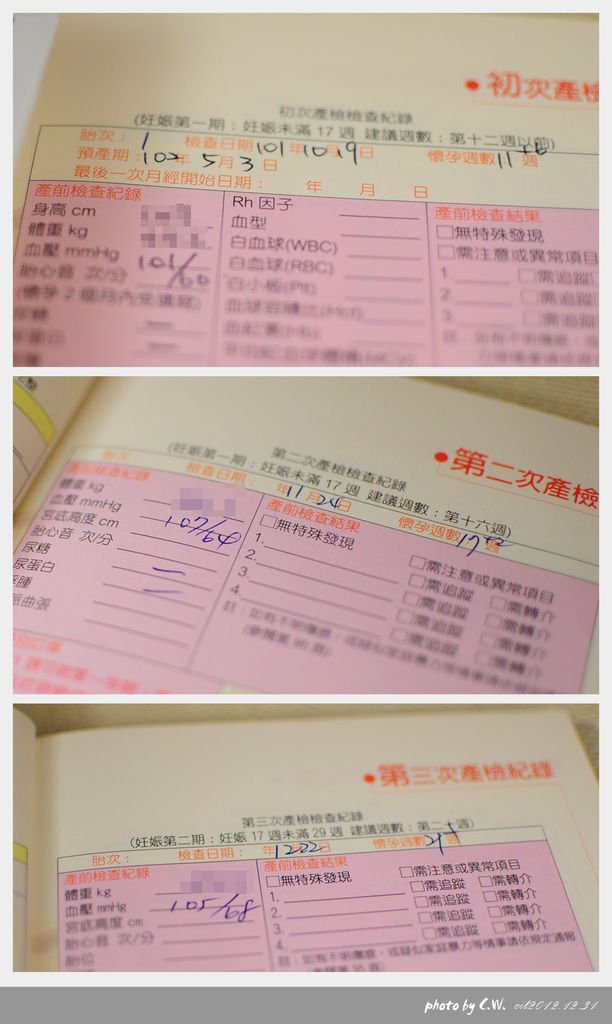 初次產檢
初次產檢檢查紀錄
(妊娠第一期：妊娠未滿 17 週 建議週數：第十二週以前)
胎次： 1 檢查日期 101年10月19日 懷孕週數 11 週
預產期：102年 5月 3日
最後一次月經開始日期： 年 月 日
產前檢查紀錄
身高 cm
體重 kg
血壓 mmHg 101/60
胎心音 次/分
Rh 因子
血型
白血球(WBC)
白血球(RBC)
產前檢查結果
□無特殊發現
□需注意或異常項目
1. □需追蹤
2. □需追蹤
3. □需追蹤
第二次產檢
第二次產檢檢查紀錄
(妊娠第一期：妊娠未滿 17 週 建議週數：第十六週)
胎次： 檢查日期： 年11月24日 懷孕週數17+2週
產前檢查紀錄
體重 kg
血壓 mmHg 107/64
宮底高度 cm
胎心音 次/分
尿糖
尿蛋白
產前檢查結果
□無特殊發現
□需注意或異常項目
1. □需追蹤 □需轉介
2. □需追蹤 □需轉介
3. □需追蹤 □需轉介
4. □需追蹤 □需轉介
第三次產檢紀錄
第三次產檢檢查紀錄
(妊娠第二期：妊娠 17 週未滿 29 週 建議週數：第二十週)
胎次： 檢查日期： 年12月22日 懷孕週數21 週
產前檢查紀錄
體重 kg
血壓 mmHg 105/68
宮底高度 cm
胎心音 次/分
胎位
產前檢查結果
□無特殊發現
□需注意或異常項目
1. □需追蹤 □需轉介
2. □需追蹤 □需轉介
3. □需追蹤 □需轉介
4. □需追蹤 □需轉介
註：如有不明傷痕，或疑似家庭暴力等情事請依規定通報
photo by C.W. 2012.12.31